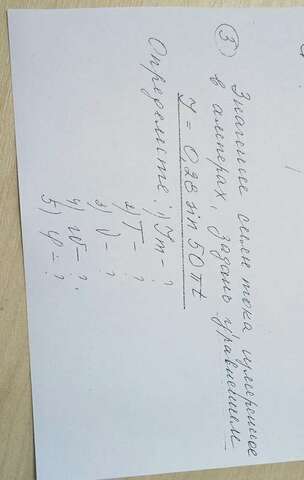 ③ Значение силы тока измеренное
в амперах, задано уравнением
I = 0,28 sin 50πt
Определите: 1) Im - ?
2) T - ?
3) ν - ?
4) W - ?
5) φ - ?